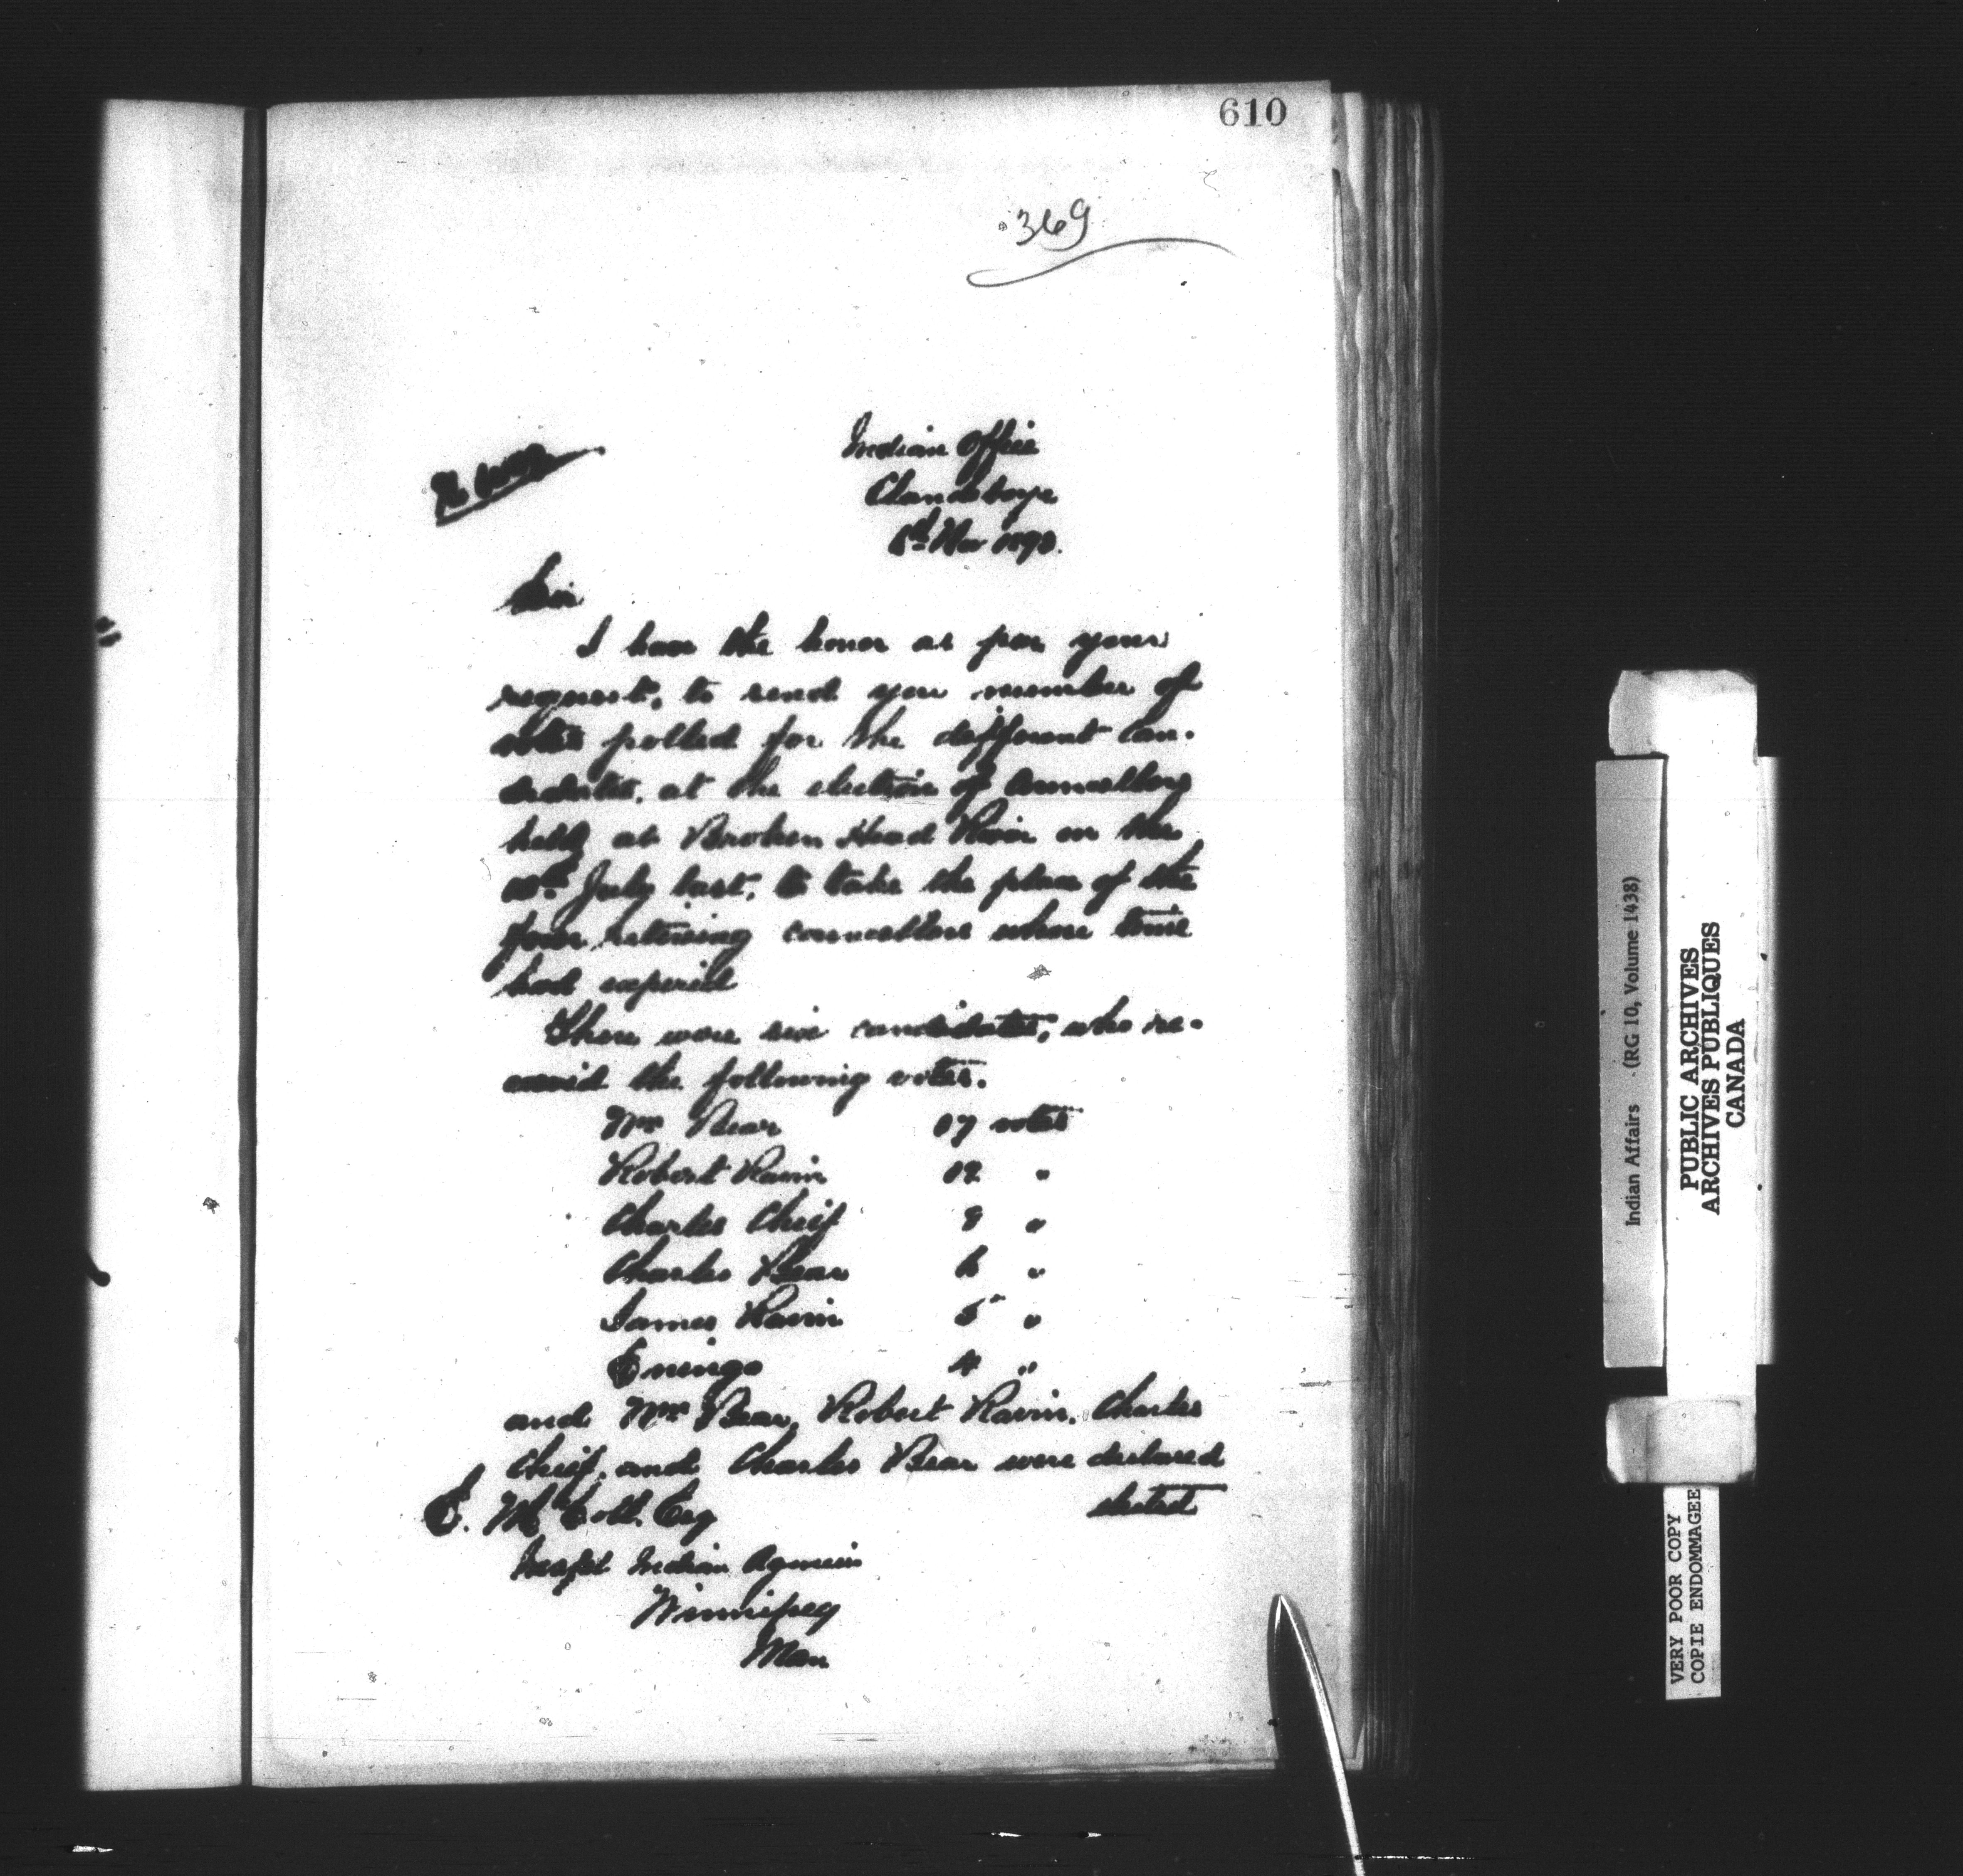 610
369
Indian Office
Clandeboye
Nov 1890.
Sir
I have the honor as per your
request, to send you number of
votes polled for the different Can-
didates, at the election of Councellors
held at Broken Head River on the
July last, to take the place of the
four retiring councellors whose time
had expired
There were six candidates, who re-
ceived the following votes.
Wm Bear 17 votes
Robert Ravin 12 "
Charles Chief 8 "
Charles Bear 6 "
James Ravin 5 "
4 "
and Wm Bear, Robert Ravin, Charles
Chief, and Charles Bear were declared
elected
E. McColl. Esq
Inspt Indian Agencies
Winnipeg
Man
Indian Affairs (RG 10, Volume 1438)
PUBLIC ARCHIVES
ARCHIVES PUBLIQUES
CANADA
VERY POOR COPY
COPIE ENDOMMAGEE